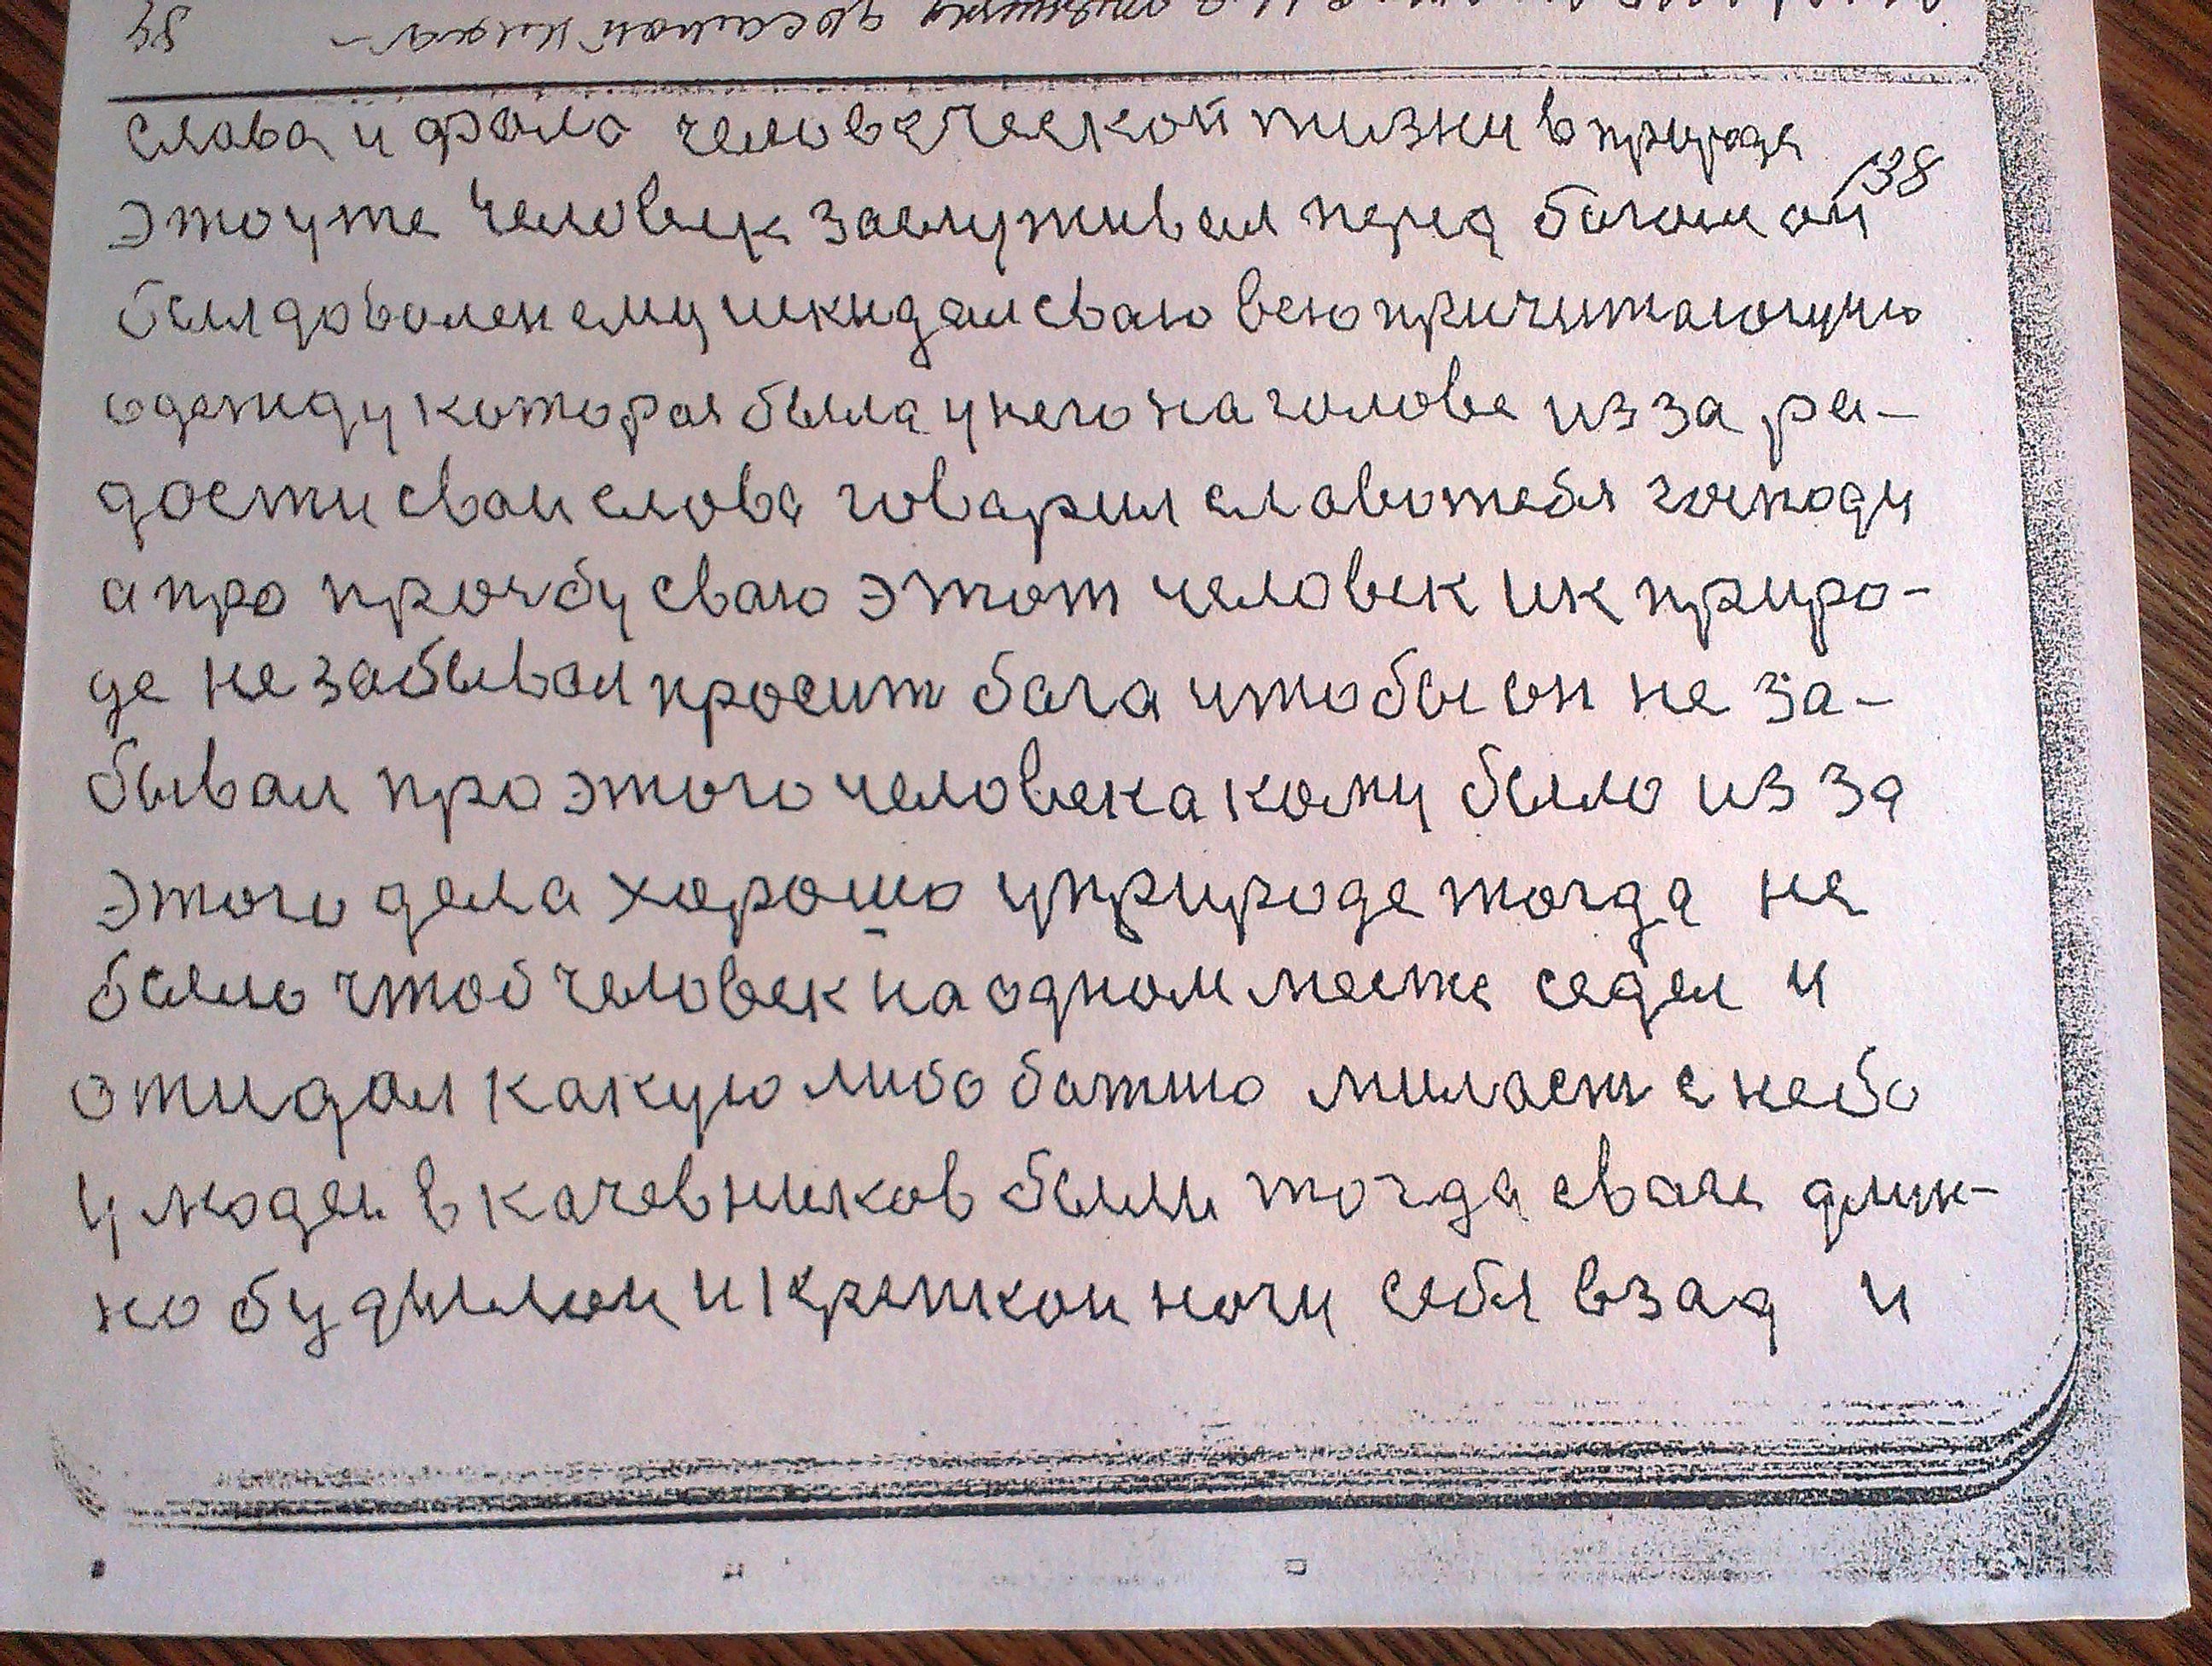 слава и фола человеческой жизни в природе
138
это уже человек заслуживал перед богом он
был доволен ему и кидал сваю всю причитающую
одежду которая была у него на голове из за ра-
дости сваи слова говарил славо тебя господи
а про прочбу сваю этот человек и к приро-
де не забывал просит бога чтобы он не за-
бывал про этого человека кому было из за
этого дела хорошо у природе тогда не
было чтоб человек на одном местеседел и
ожидал какую либо божию миласт с небо
у людей в качевников были тогда сваее длин-
но будылои и крепкои ноги себя взад и